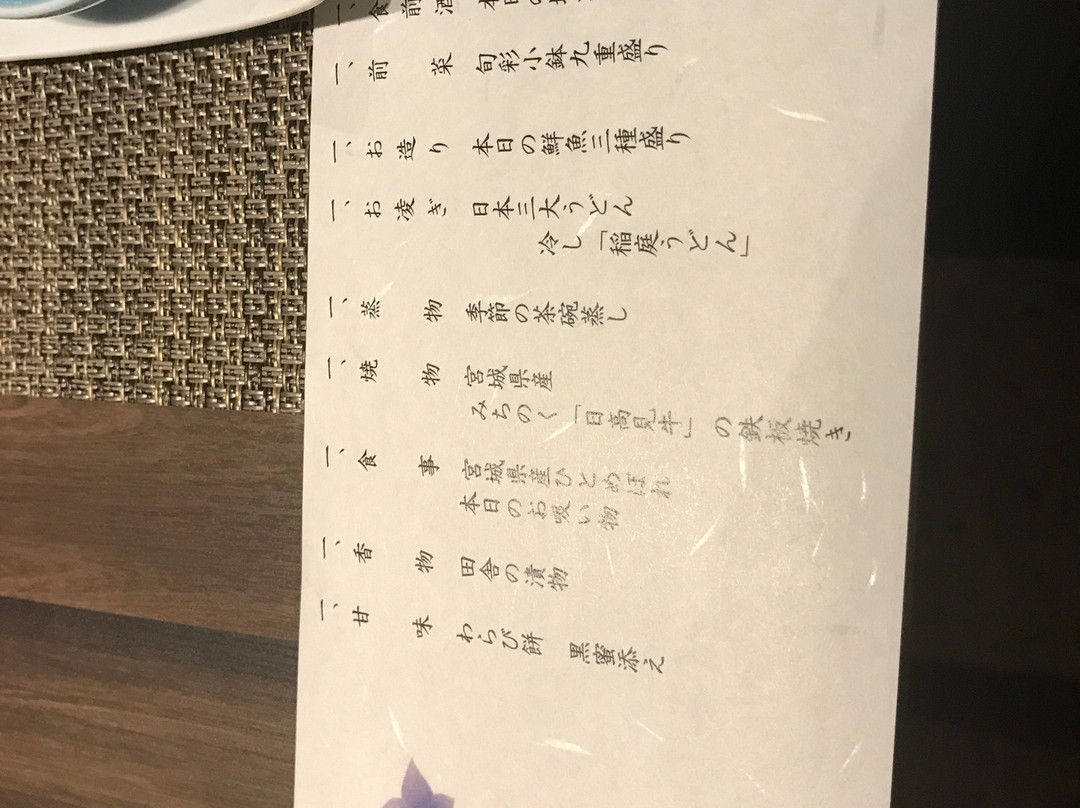 一、食前酒 本日の
一、前菜 旬彩小鉢九重盛り
一、お造り 本日の鮮魚三種盛り
一、お凌ぎ 日本三大うどん
冷し「稲庭うどん」
一、蒸物 季節の茶碗蒸し
一、焼物 宮城県産
みちのく「日高見牛」の鉄板焼き
一、食事 宮城県産ひとめぼれ
本日のお吸い物
一、香物 田舎の漬物
一、甘味 わらび餅 黒蜜添え